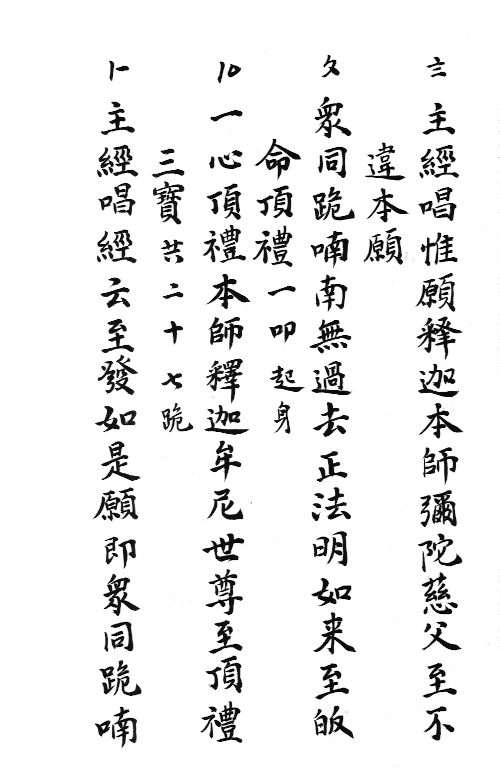 〨主經唱惟願釋迦本師彌陀慈父至不
違本願
〩眾同跪喃南無過去正法明如来至皈
命頂禮一叩起身
〡〇一心頂禮本師釋迦牟尼世尊至頂禮
三寶共二十七跪
〡一主經唱經云至發如是願即眾同跪喃